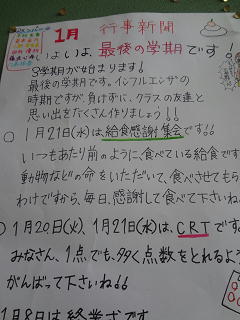 1月 行事新聞
いよいよ、最後の学期です!
3学期が始まります!
最後の学期です。インフルエンザの
時期ですが、負けずに、クラスの友達と
思い出をたくさん作りましょう!!
○1月21日(水)は、給食感謝集会です!!
いつもあたり前のように、食べている給食です
動物などの命をいただいて、食べさせてもら
わけですから、毎日、感謝して食べて下さいね
○1月20日(火)、1月21日(水)は、CRTです
みなさん、1点でも、多く点数をとれるよう
がんばって下さいね!!
1月8日は終業式です